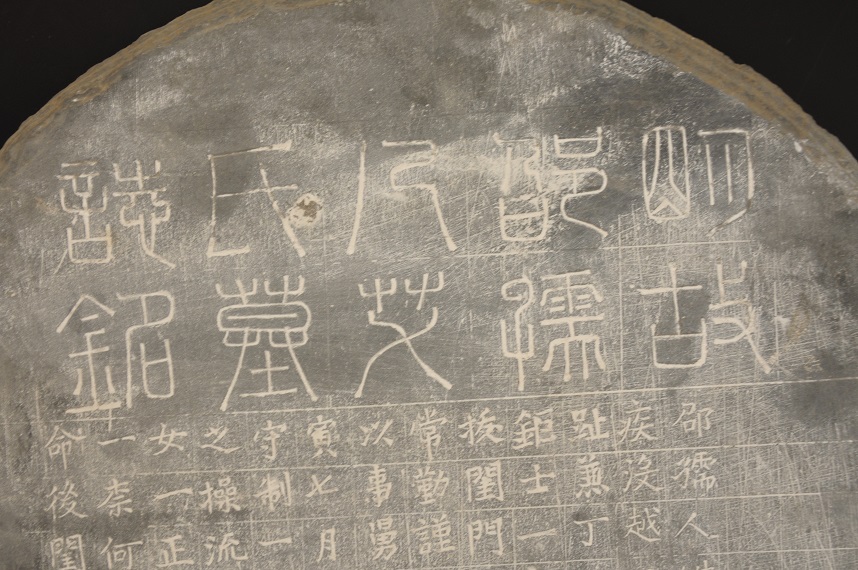 明故
邵孺
人艾
氏墓
誌銘
邵孺人
疾沒越
趾兼丁
鉅士一
掖閨門
常勤謹
以事舅
寅七月
守制一
之操流
女一正
一柰何
命後閨